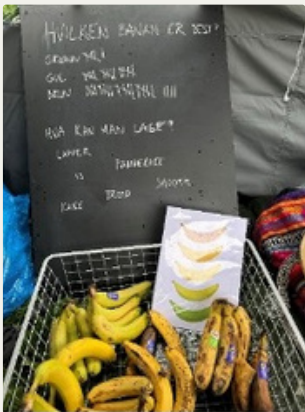 HVILKEN BANAN ER BEST?
GRØNN
GUL
BRUN
HVA KAN MAN LAGE?
LAPPER
PANNEKAKE
IS
SMOOTHIE
KAKE BRØD